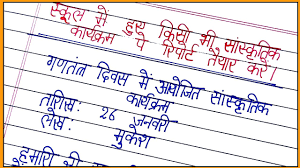 स्कूल में हुए किसी भी सांस्कृतिक
कार्यक्रम पे रिपोर्ट तैयार करे।
गणतंत्र दिवस में आयोजित सांस्कृतिक
कार्यक्रम
तारिख: 26 जनवरी
लेख: मुकेश
हमारी श्री